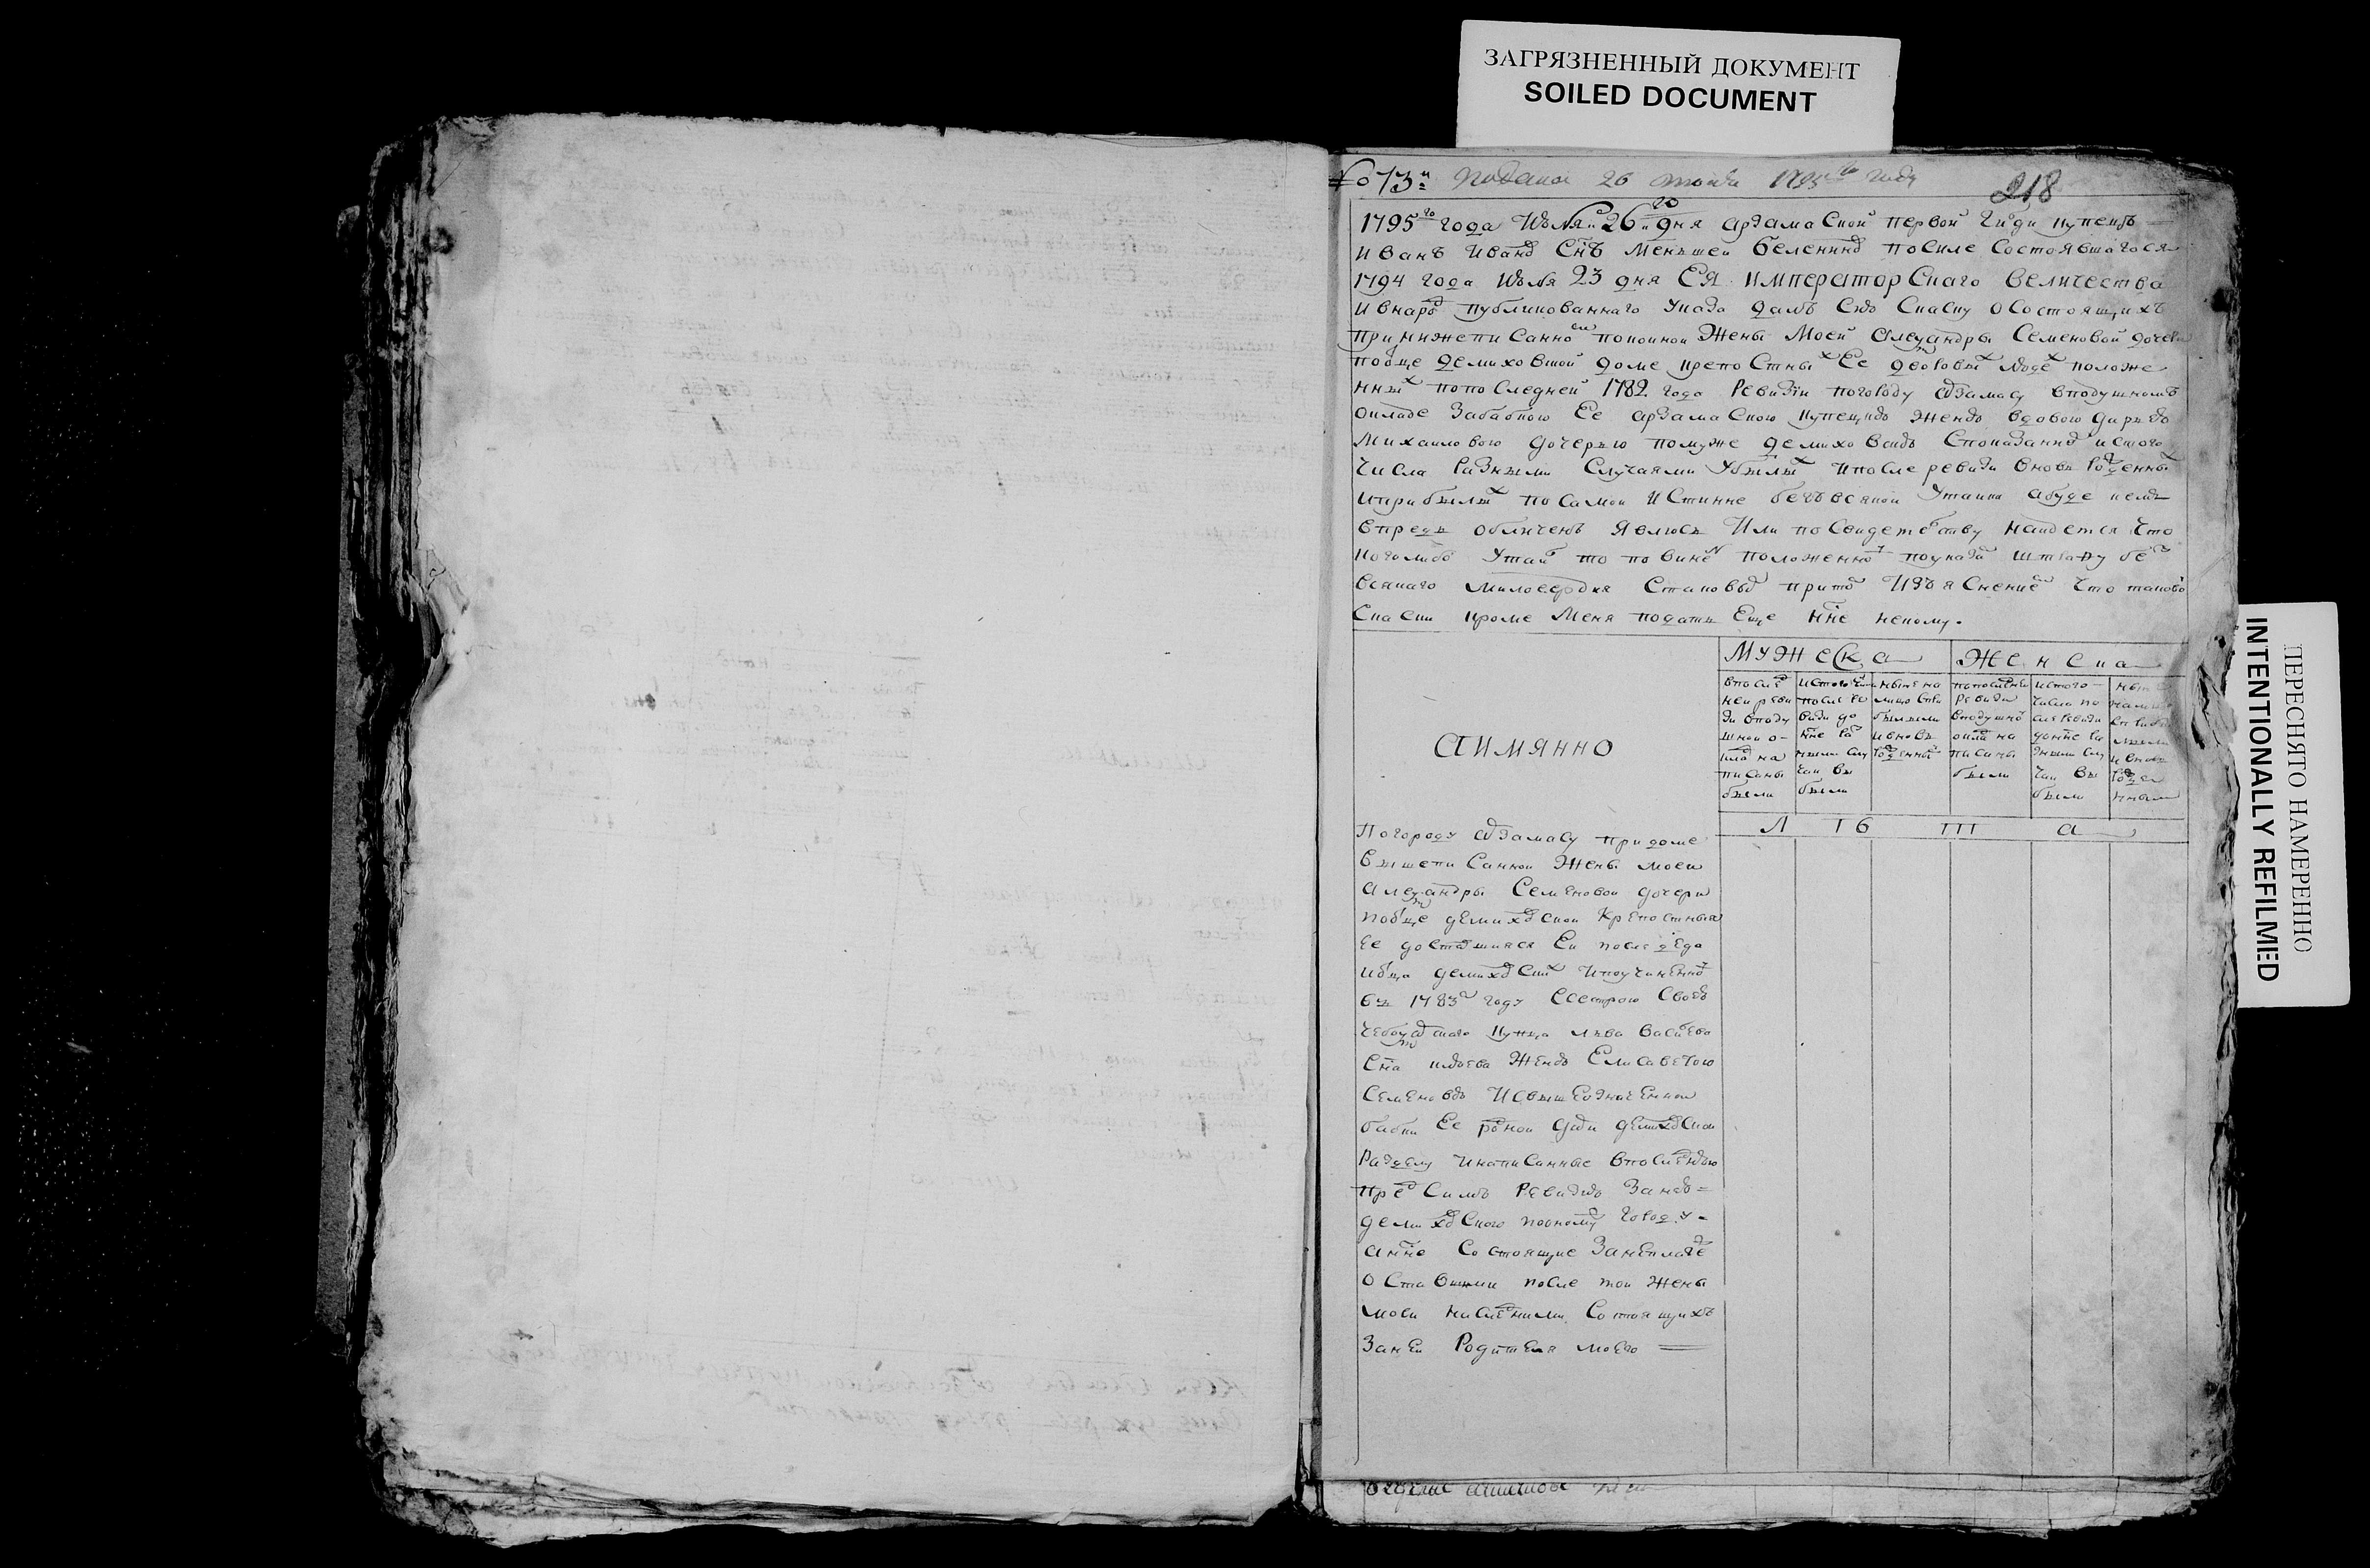 ЗАГРЯЗНЕННЫЙ ДОКУМЕНТ
SOILED DOCUMENT
№ 73й подана 26 июля 1795го году
218
1795го года Июля 26го дня арзамаской первой гилди купецъ
Иванъ Иванов Снъ Меньшей беленинъ посиле состоявшагося
1794 года Июня 23 дня ЕЯ императорскаго величества
и внарод публикованнаго указа далъ сию скаску о состоящихъ
при нижеписанной покойной жены моей александры Семеновой дочери
по отце демиховской доме крепостных Ее дворовых людех положе
нных по последней 1782 года Ревизии по городу арзамасу в подушномъ
окладе за бабкою Ее арзамаскою купецкою женою вдовою дарьею
Михаиловою дочерью по муже демиховскою с показанием из того
числа разными случаями убылых и после ревизи вновь рожденных
и прибылых по самой истинне безъ всякой утайки а буде кемъ
впредь обличенъ явлюсь или по свидетельству найдется что
кого либо утаил то повинен положенному по указам штрафу без
всякаго милосердия с таковым притом изъяснением что таковой
скаски кроме меня подать еще нне некому.
аимянно
мужеска
женска
в после
дней реви
зи в поду
шном о
кладе на
писаны
были
из того числа
после ре
визи до
нне раз
ными слу
чаи вы
были
ныне на
лицо с при
былыми
и вновь
рожденными
по последней
ревизи
в подушном
окладе на
писаны
были
из того
числа по
сле ревизи
до нне ра
зными слу
чаи вы
были
ныне
налицо
с прибы
лыми
и вновь
рожден
ными
Л ѣ т а
По городу арзамасу при доме
вышеписанной жены моей
александры Семеновой дочери
по отце демиховской крепостныя
Ее доставшияся Ей после деда
и отца демиховских и по учиненному
въ 1783м году с сестрою своею
чебоксарскаго купца льва васильева
Сна жена Елисаветою
Семеновою и с вышеозначенною
бабки Ее родной дарьи демиховской
разделу и написанные в последнюю
пред симъ ревизию за нею
демиховскою по оному городу
а нне состоящие за неплатеж
оставшими после той жены
моей наследниками состоящихъ
за ней родителя моего
ПЕРЕСНЯТО НАМЕРЕННО
INTENTIONALLY REFILMED